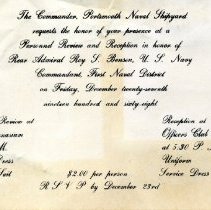 The Commander, Portsmouth Naval Shipyard
requests the honor of your presence at a
Personal Review and Reception in honor of
Rear Admiral Roy S. Benson, U. S. Navy
Commandant, First Naval District
on Friday, December twenty-seventh
nineteen hundred and sixty-eight
Review at
M.
Dress
Suit
Reception at
Officers Club
at 5:30 P
Uniform
Service Dress
$2.00 per person
R S V P by December 23rd